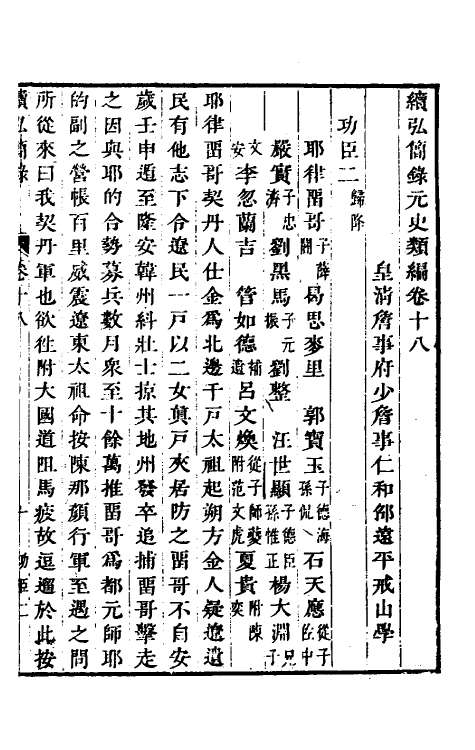 續弘簡錄元史類編卷十八
皇清詹事府少詹事仁和邵遠平戒山學
功臣二歸降
耶律畱哥子薛闍 曷思麥里 郭寶玉子德海孫侃 石天應從子佐中
嚴實子忠濟 劉黑馬子元振 劉整 汪世顯子德臣孫惟正 楊大淵兄子
文安 李忽蘭吉 管如德補遺 呂文煥從子師夔附范文虎 夏貴附陳奕
耶律畱哥契丹人仕金爲北邊千戸太祖起朔方金人疑遼遺
民有他志下令遼民一戸以二女眞戸夾居防之畱哥不自安
歲壬申遁至隆安韓州糾壯士掠其地州發卒追捕畱哥擊走
之因與耶的合勢募兵數月衆至十餘萬推畱哥爲都元帥耶
的副之營帳百里威震遼東太祖命按陳那顏行軍至遇之問
所從來曰我契丹軍也欲徃附大國道阻馬疲故逗遛於此按
續弘簡錄 卷十八 功臣二